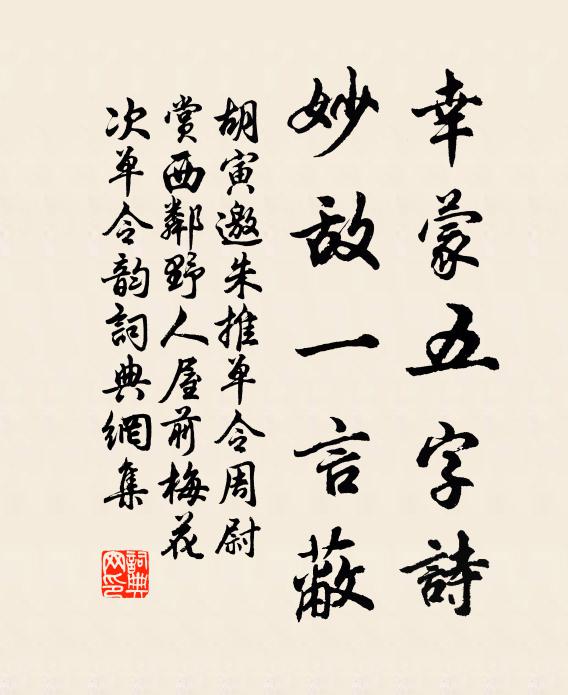 幸蒙五字詩
妙敌一言蔽
胡寅邀朱推单令周尉
赏西鄰野人屋前梅花
次单令韵詞典網集
詞典网印